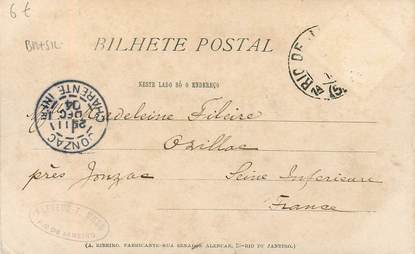 6 €
BRESIL
BILHETE POSTAL
NESTE LADO SÓ O ENDEREÇO
RIO DE J
JONZAC
CHARENTE INFRE
DEC
04
Madeleine
Ozillac
près Jonzac Seine Inferieure
France
RIO DE JANEIRO
(A. RIBEIRO, FABRICANTE-RUA SENADOR ALENCAR, -RIO DE JANEIRO.)